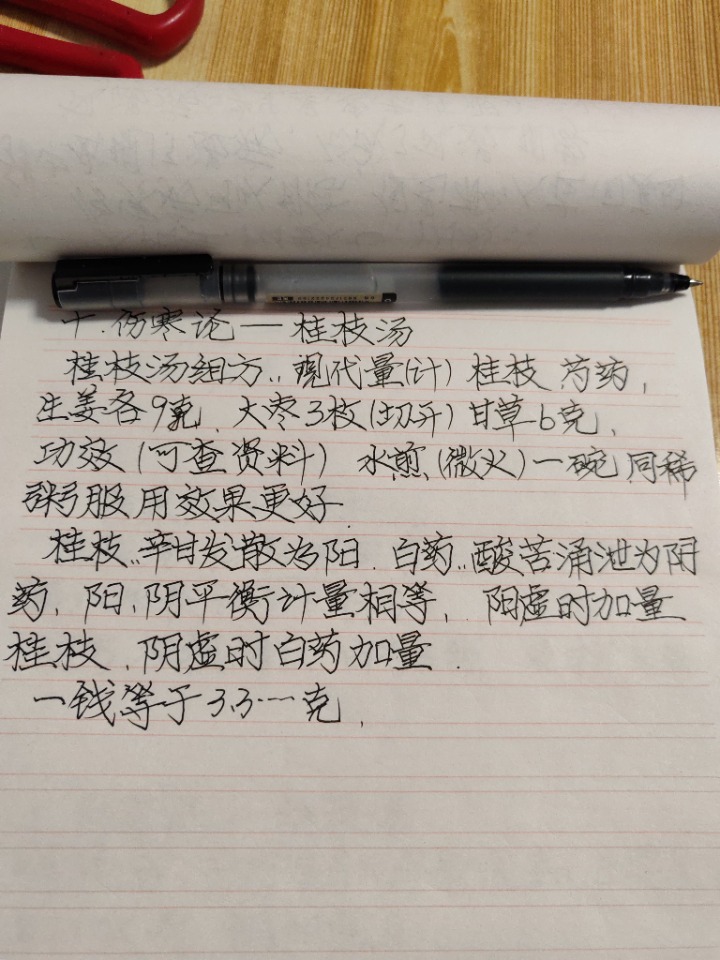 十.伤寒论一桂枝汤
桂枝汤组方..现代量(计)桂枝 芍药,
生姜各9克, 大枣3枚(切开)甘草6克,
功效(可查资料) 水煎(微火)一碗同稀
粥服用效果更好.
桂枝..辛甘发散为阳.白药..酸苦涌泄为阴
药,阳,阴平衡计量相等, 阳虚时加量
桂枝,阴虚时白药加量.
一钱等于3.3……克,